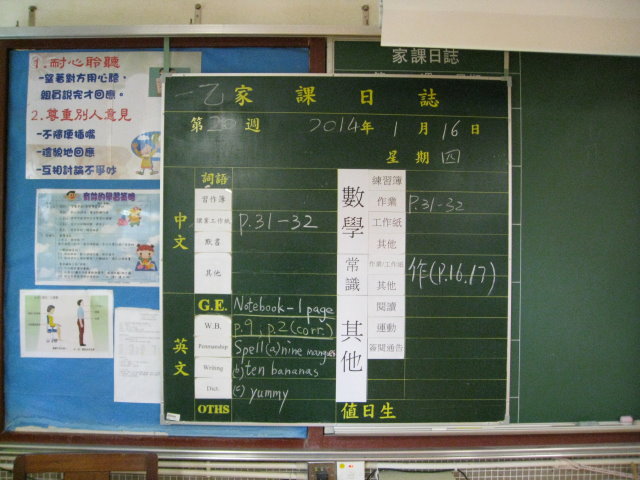 1.耐心聆聽
-望著對方用心聽、
組員說完才回應。
2.尊重別人意見
-不隨便插嘴
-禮貌地回應
-互相討論不爭吵
有效的學習策略
家課日誌
一乙家課日誌
第20週 2014年1月16日
星期四
中文
詞語
習作簿
課業工作紙 P.31-32
默書
其他
英文
G.E. Notebook - 1 page
W.B. p.9; p.2 (corr.)
Penmanship Spell (a) nine mangoes
Writing (b) ten bananas
Dict. (c) yummy
OTHS
數學
練習簿
作業 P.31-32
工作紙
其他
常識
作業/工作紙 作(P.16,17)
其他
其他
閱讀
運動
簽閱通告
值日生